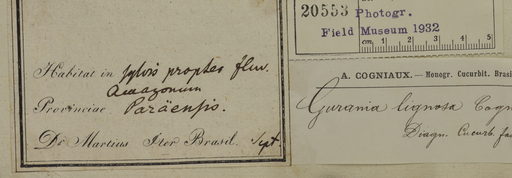 Habitat in sylvis propter fluv.
Amazonum
Provinciae Paräensis.
Dr Martius Iter Brasil. Sept
20553 Photogr.
Field Museum 1932
cm 1 2 3 4 5
A. COGNIAUX. — Monogr. Cucurbit. Brasi
Gurania lignosa Cogn
Diagn. Cucurb. fa